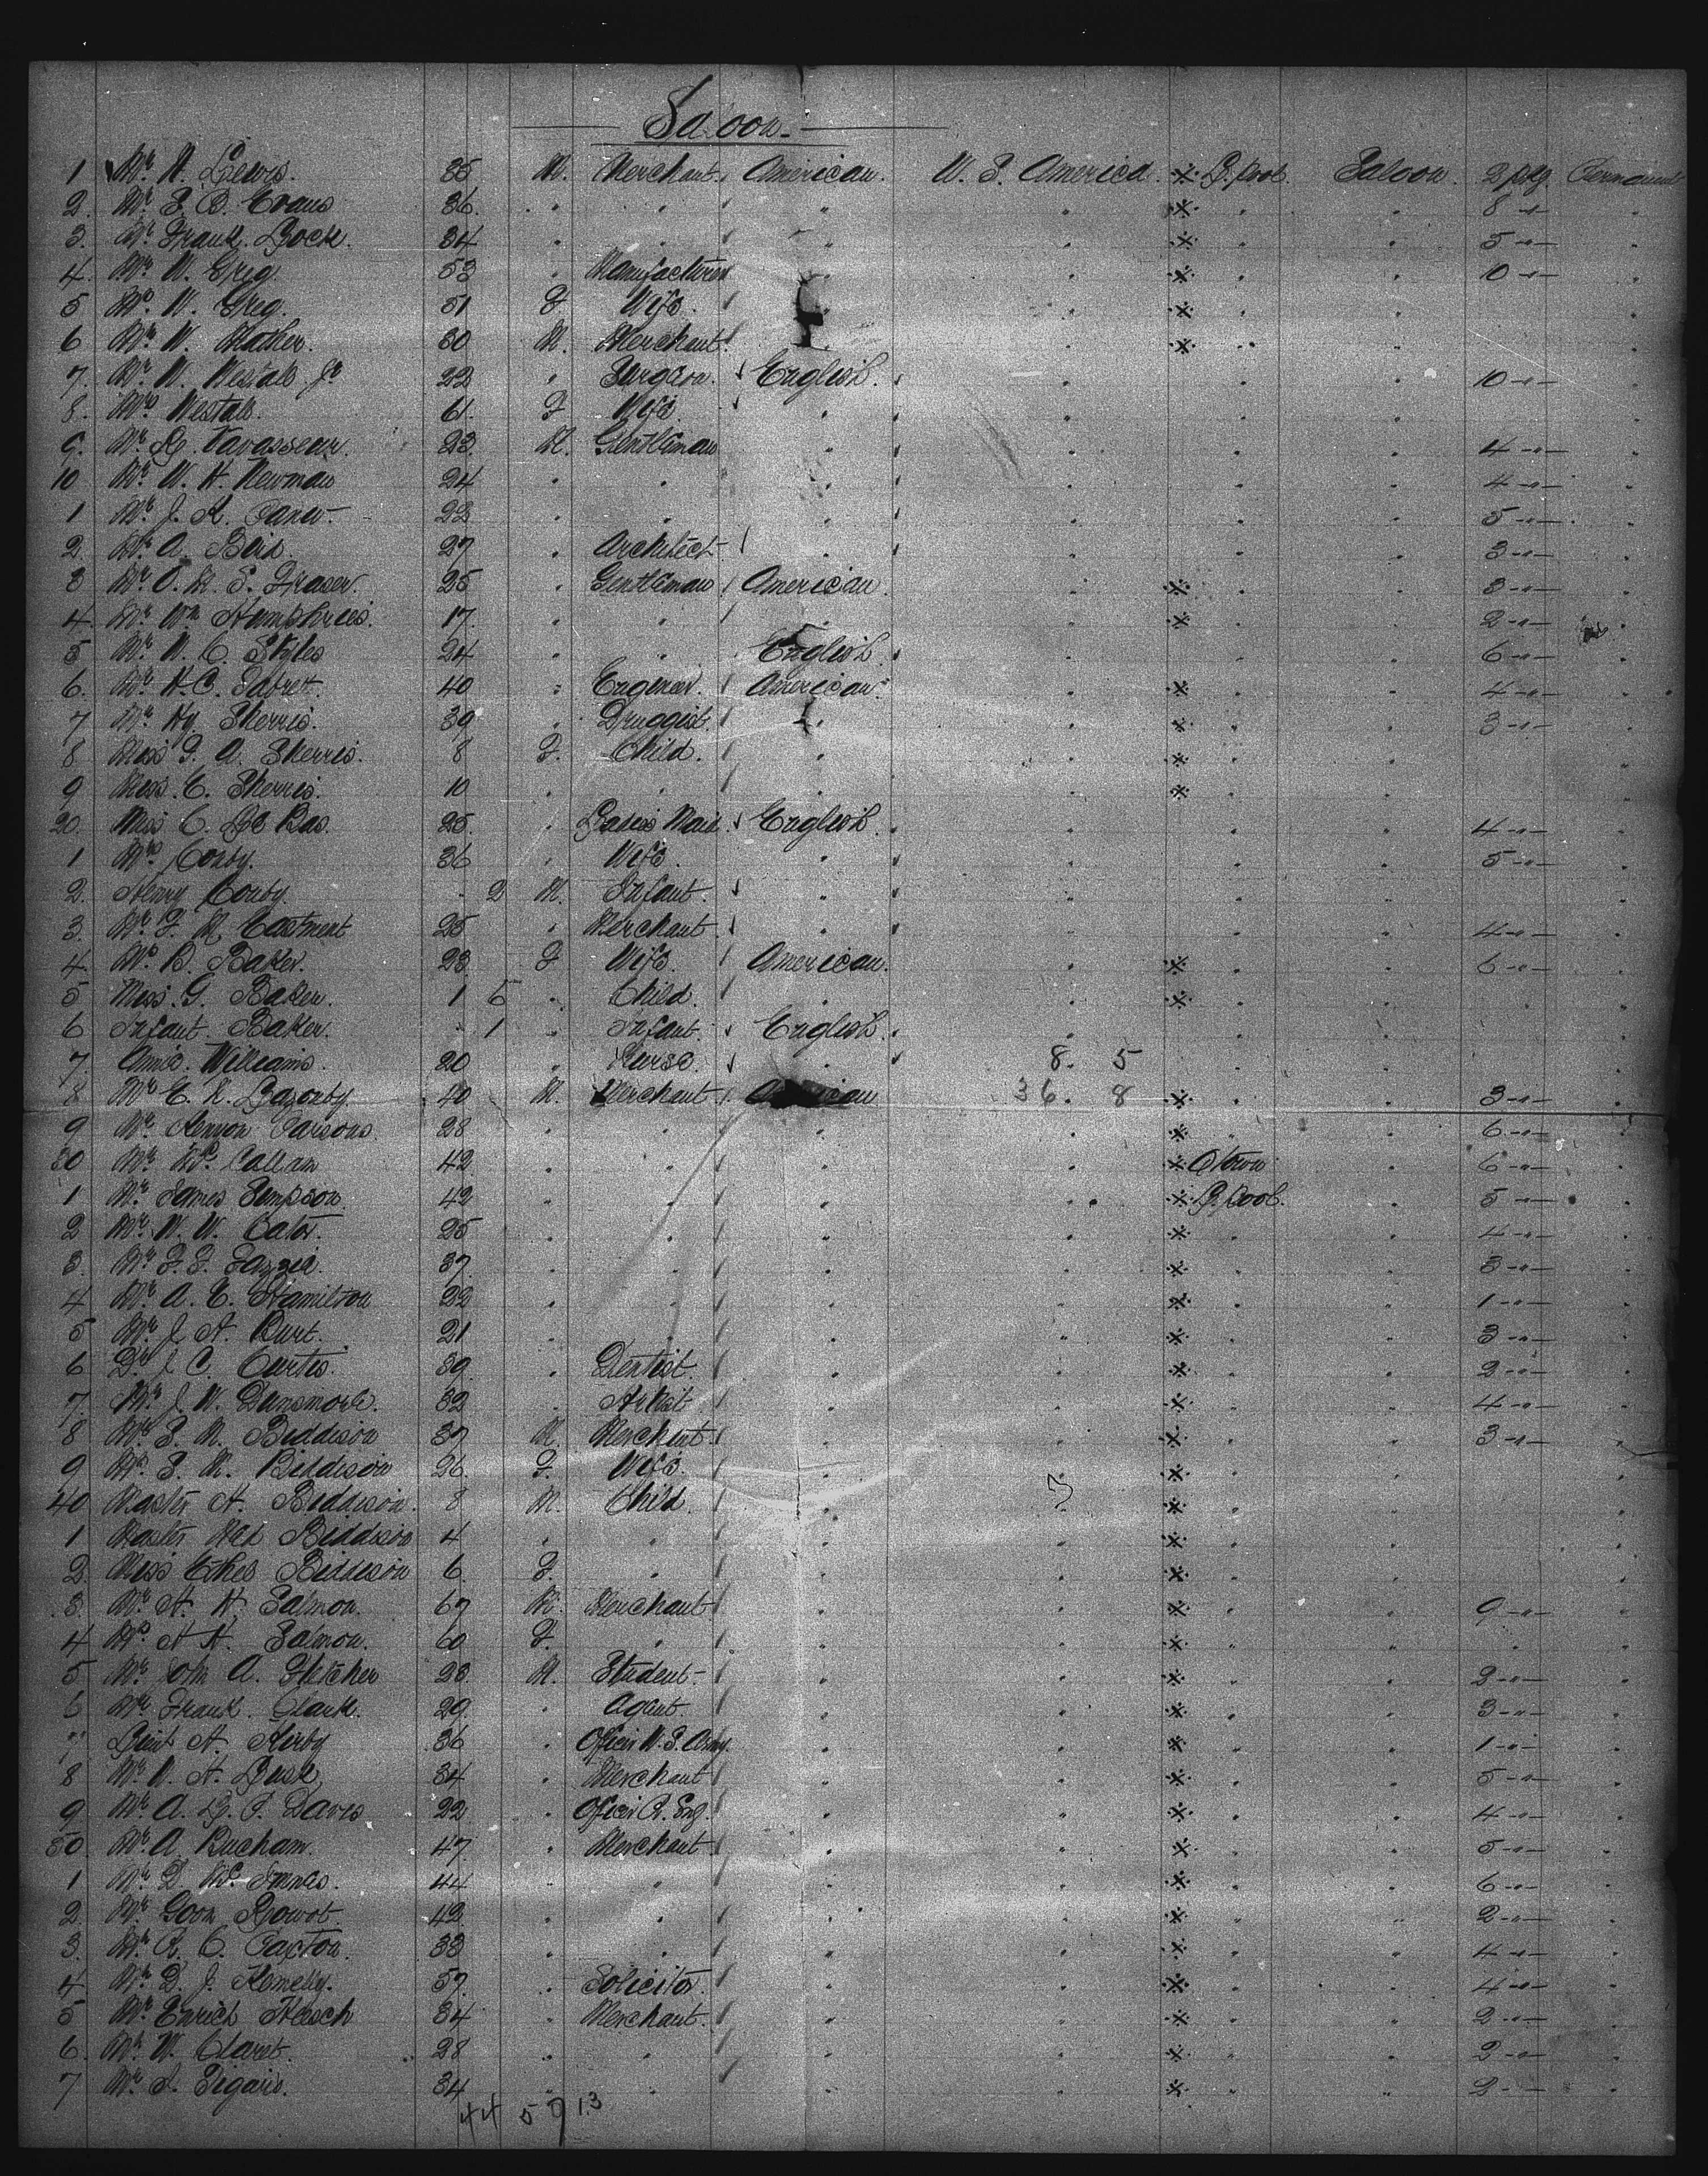 Saloon
1 Mr H. Lewis. 35 M. Merchant. American. U. S. America. L.pool. Saloon. 2 pkg.
2. Mr S. B. Evans 36. " " " " " " 8 "
3. Mr Frank. Lock. 34 " " " " " " 5 "
4. Mr W. Greg. 53 " Manufacturer " " " " 10 "
5 Mrs W. Greg. 51 F Wife. " " " "
6 Mr W. Mather. 30 M. Merchant. " " "
7. Mr W. Westall Jr 22 " Surgeon. English. " " " 10 "
8. Mrs Westall. 61. F Wife " " " "
9. Mr Vavasseur. 23. M. Gentleman " " " " 4 "
10 Mr W. H. Newman 24 " " " " " " 4 "
1 Mr J. K. 22 " " " " " " 5 "
2. Mr A. 27 " Architect " " " " 3 "
3 Mr O. M. S. Fraser. 25 " Gentleman American. " " " 3 "
4. Mr Wm Humphries. 17. " " " " " " 2 "
5 Mr W. C. Skyles 24 " " English. " " " 6 "
6. Mr H. C. 40 " Engineer. American. " " " 4 "
7 Mr Hy Sherris. 39 " Druggist. " " " " 3 "
8 Miss F. A. Sherris. 8 F. Child. " " " "
9 Miss. E. Sherris. 10 " " " " " "
20. Miss C. Le Bas. 25. " Ladies Maid. English. " " " 4 "
1 Mrs Corby. 36 " Wife. " " " " 5 "
2. Henry Corby. 2 M. Infant. " " " "
3. Mr F. M. Eastment 25 " Merchant. " " " " 4 "
4. Mrs B. Baker. 23 F Wife. American. " " " 6 "
5 Miss. G. Baker. 1 5 " Child. " " " "
6 Infant Baker. 1 " Infant. English. " " "
7. Annie. Williams. 20 " Nurse. " 8. 5 " "
8 Mr E. R. Lazonby 40 M. Merchant American 36. 8 " " 3 "
9 Mr Kenyon Parsons. 28 " " " " " " 6 "
30 Mr Mc Callam 42 " " " " Qtown " 6 "
1 Mr James Simpson. 42 " " " " L.pool. " 5 "
2 Mr W. W. Cator. 25 " " " " " " 4 "
3. Mr F. F. 37. " " " " " " 3 "
4 Mr A. E. Hamilton 22 " " " " " " 1 "
5 Mr J. A. Burt. 21 " " " " " " 3 "
6 Dr J. C. Curtis. 39. " Dentist. " " " " 2 "
7. Mr J. W. Dunsmore. 32 " Artist " " " " 4 "
8 Mr S. M. Beddison 37 M. Merchant. " " " " 3 "
9 Mrs S. M. Beddison 26. F. Wife. " " " "
40 Master H. Beddison. 8 M. Child. " " " "
1 Master Ned Beddison 4 " " " " " "
2. Miss Ethel Beddison 6. F. " " " " "
3. Mr H. H. Salmon. 67 M. Merchant " " " " 9 "
4 Mrs H. H. Salmon. 60 F. " " " " " "
5 Mr John A. Fletcher 28. M. Student " " " " 2 "
6 Mr Frank. Clark. 29. " Agent. " " " " 3 "
7 Lieut H. Kirby 36 " Officer U. S. Army. " " " " 1 "
8 Mr W. H. Lusk 34 " Merchant " " " " 5 "
9 Mr A. L. F. Davis 22 " Officer R. Eng. " " " " 4 "
50. Mr A. Bucham. 47. " Merchant " " " " 5 "
1 Mr D. Mc Innes. 44 " " " " " " 6 "
2. Mr 42. " " " " " " 2 "
3. Mr R. C. Paxton. 33 " " " " " " 4 "
4 Mr D. J. 57. " Solicitor. " " " " 4 "
5 Mr Enrich Hesch 34 " Merchant. " " " " 2 "
6. Mr W. Claret. 28 " " " " " " 2 "
7 Mr 34 " " " " " " 2 "
44 57 13